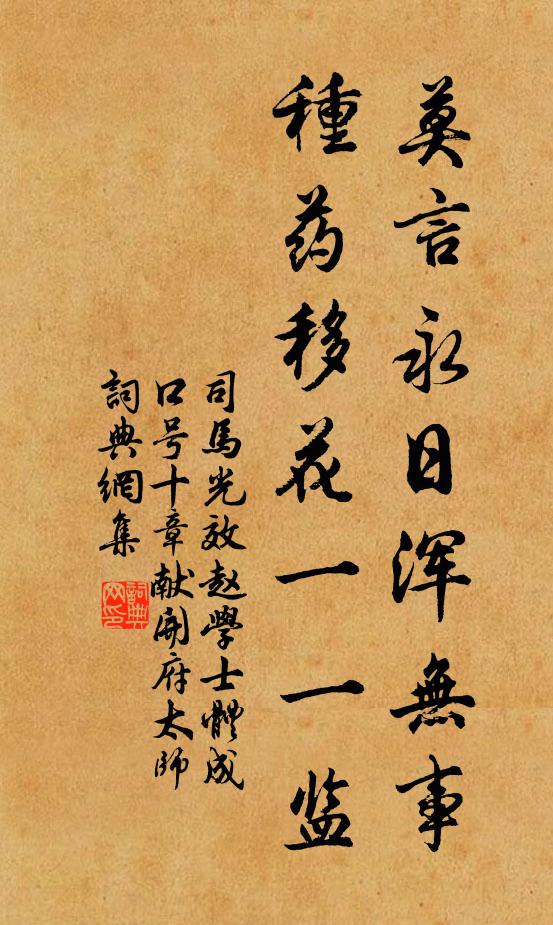 莫言永日浑無事
種药移花一一监
司馬光效赵學士體成
口号十章献開府太師
詞典網集
詞典網印